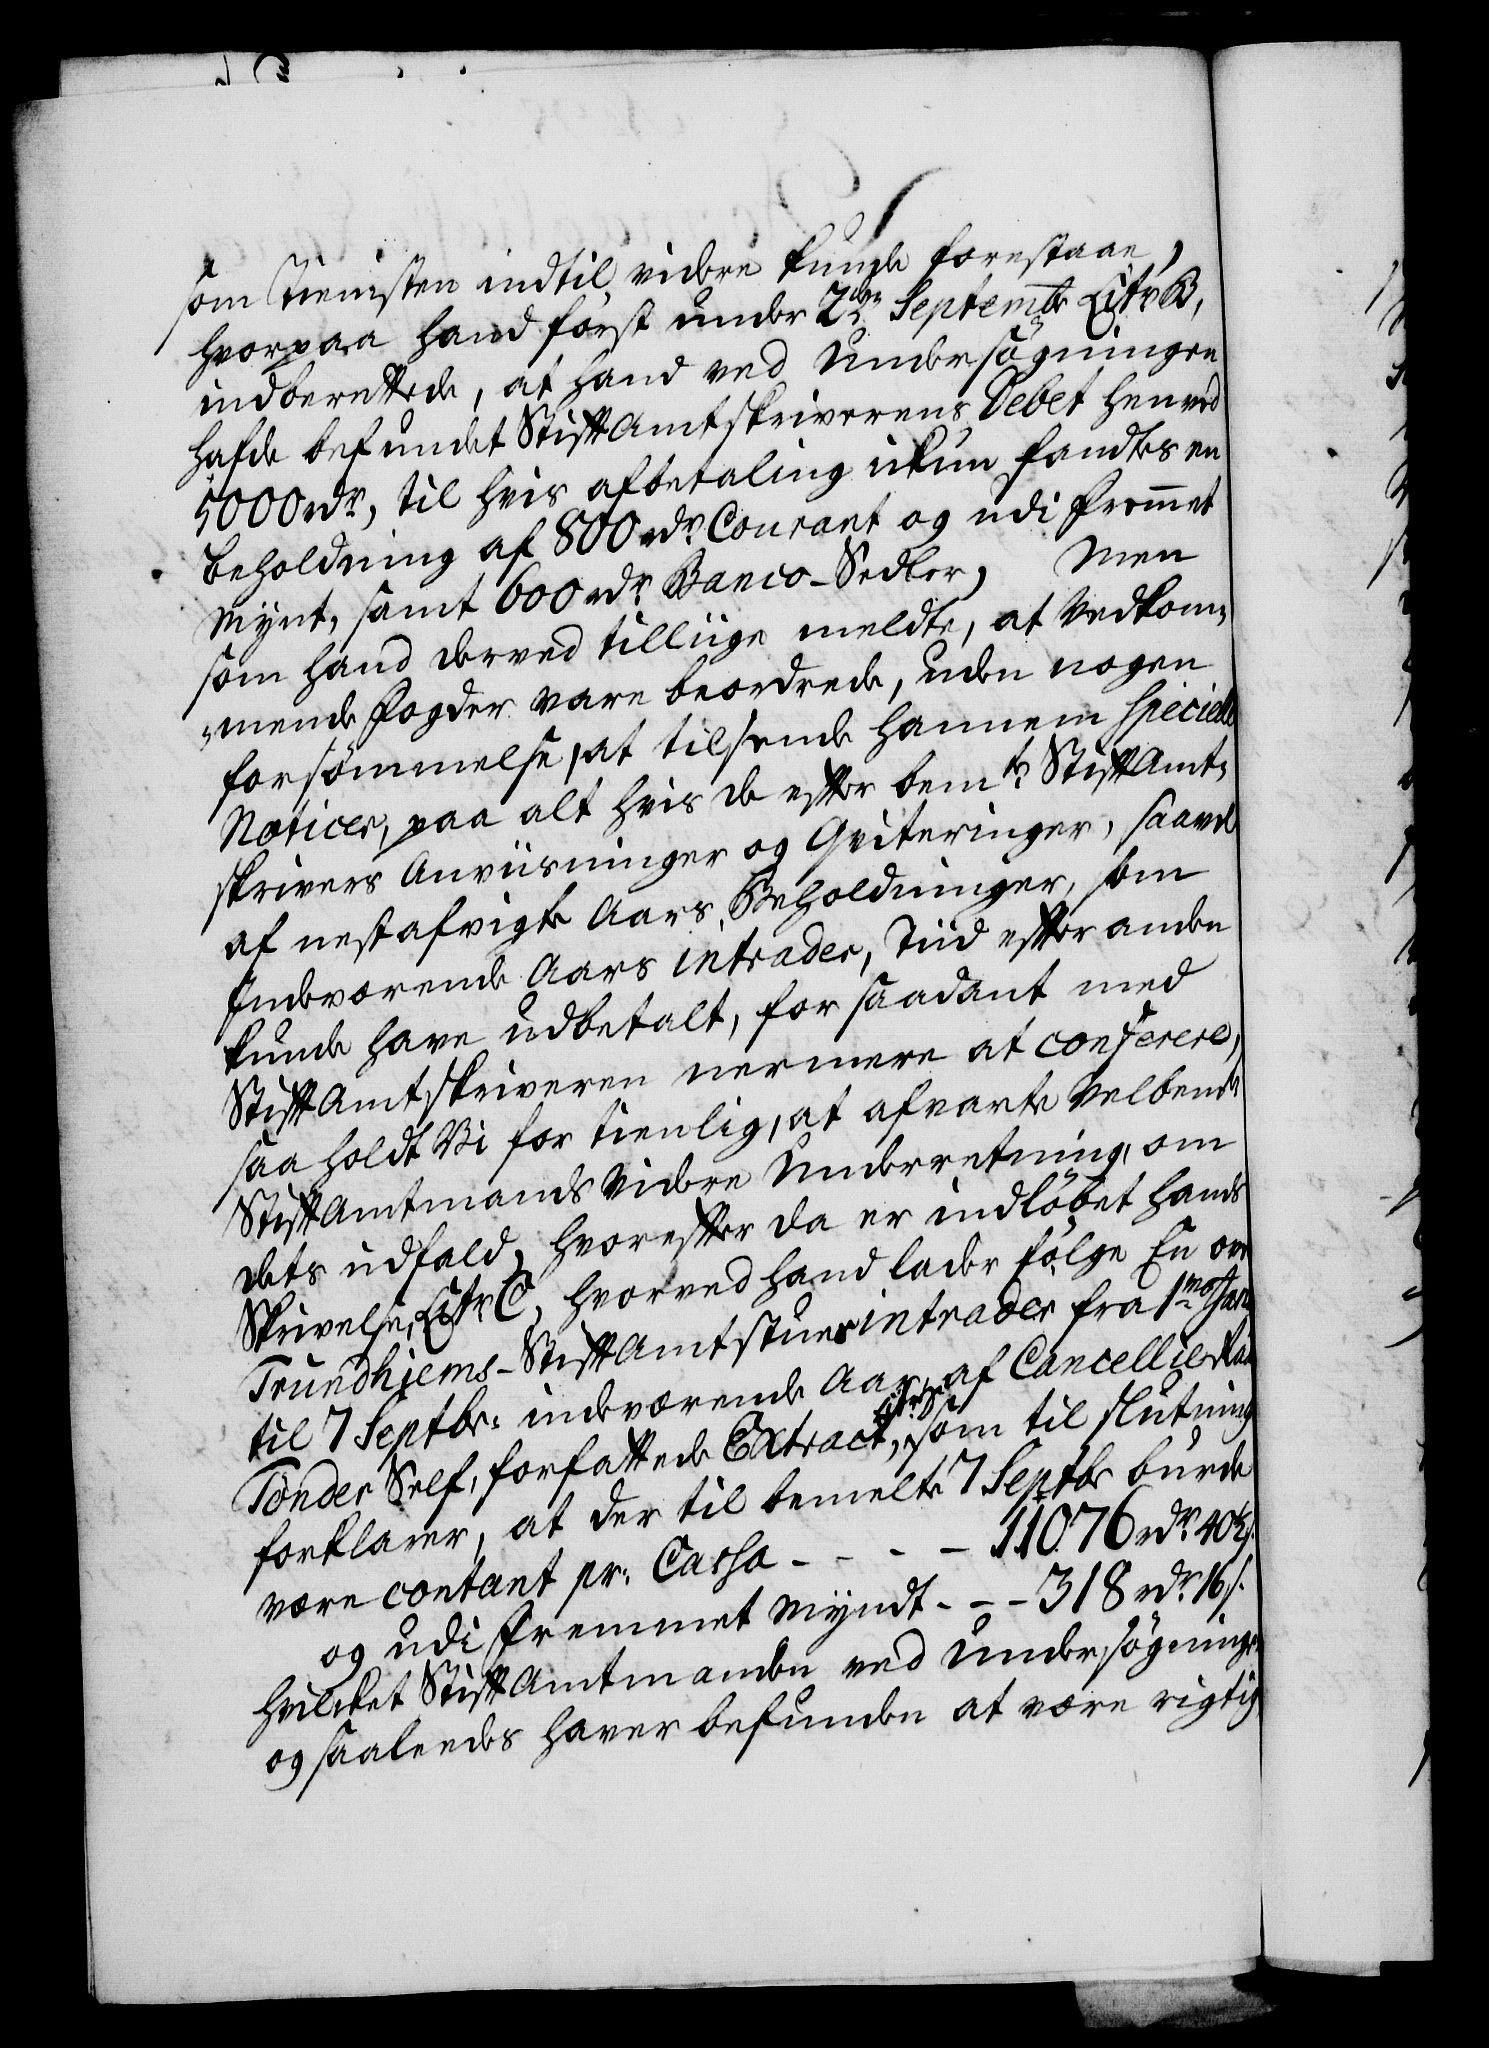 som Tienisten indtil videre kunde forestaae,
hvorpaa hand først under 2den Septembr Litr B,
indberettede, at hand ved Undersøgningen
hafde befundet StiftAmtskriverens Debet henved
5000 rdr, til hvis afbetaling ikun fandtes en
beholdning af 800 rdr Courant og udi fremmet
Mynt, samt 600 rdr Banco-Sedler, Men
som hand derved tillige meldte, at Vedkom,,
,,mende fogder vare beordrede, uden nogen
forsømmelse, at tilsende hannem specielle
Notices, paa alt hvis de efter bemte StiftAmt,,
skrivers Anviisninger og Qviteringer, saavel
af nestafvigte Aars Beholdninger, som
Indeværende Aars intrader, Tiid efter anden
kunde have udbetalt, for saadant med
StiftAmtskriveren nermere at conferere,
saa holdt Vi for tienlig, at afvarte Velbemte
StiftAmtmands Videre Underretning, om
dets udfald, hvorefter da er indløbet hands
Skrivelse, Litr. C, hvorved hand lader følge En over
Trundhiems-StiftAmtstues intrader fra 1mo Jan
til 7 Septbr: indeværende Aar, af CancellieRaad
Tønder Self, forfattede Extract, som til slutning
forklarer, at der til bemelte 7 Septbr burde
være contant pr: Cassa - - - - 11076 rdr 40 ß.
og udi fremmet Myndt - - - 318 rdr. 16 s.
hvilket StiftAmtmanden ved Undersøgningen
og saaleedes haver befunden at være rigtig